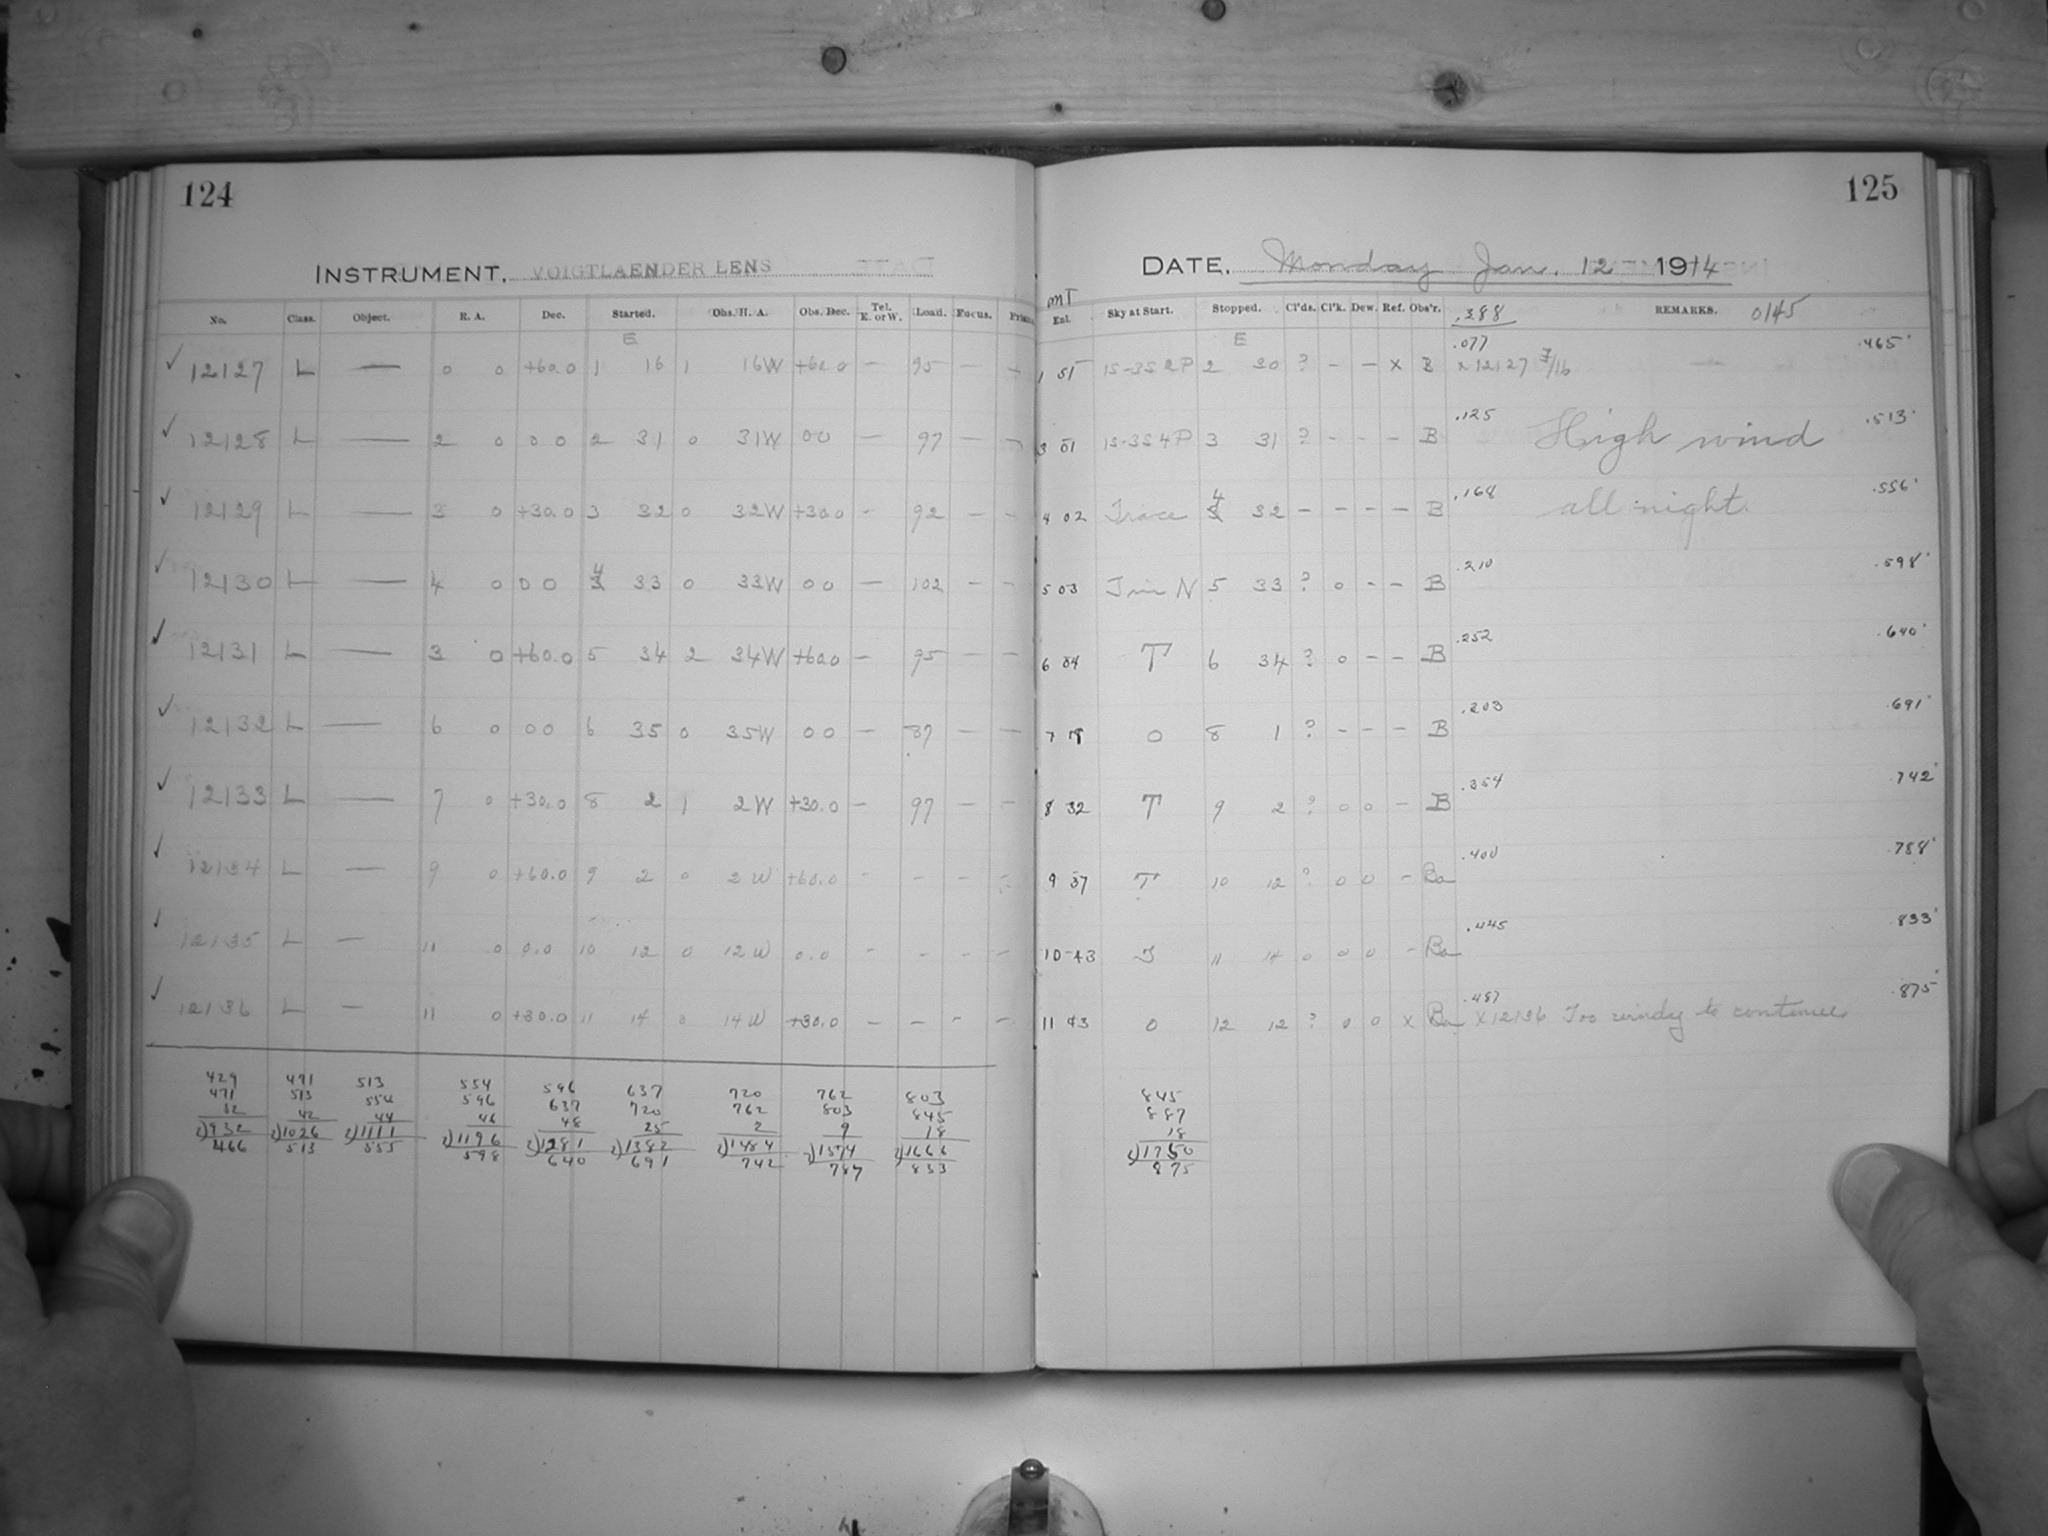 124
INSTRUMENT. VOIGTLAENDER LENS
No. Class. Object. R. A. Dec. Started. Obs. H. A. Obs. Dec. Tel. E. or W. Load. Focus.
E
✓ 12127 L — 0 0 +60.0 1 16 1 16W +60.0 — 95 — —
✓ 12128 L — 2 0 0 0 2 31 0 31W 0 0 — 97 — —
✓ 12129 L — 3 0 +30.0 3 32 0 32W +30.0 - 92 — —
✓ 12130 L — 4 0 0 0 4 33 0 33W 0 0 — 102 — —
✓ 12131 L — 3 0 +60.0 5 34 2 34W +60.0 — 95 — —
✓ 12132 L — 6 0 0 0 6 35 0 35W 0 0 — 87 — —
✓ 12133 L — 7 0 +30.0 8 2 1 2W +30.0 — 97 — —
✓ 12134 L — 9 0 +60.0 9 2 0 2W +60.0 - - - -
✓ 12135 L — 11 0 0.0 10 12 0 12W 0.0 - - - -
✓ 12136 L — 11 0 +30.0 11 14 0 14W +30.0 — — - —
429 471 513 554 596 637 720 762 803
471 513 554 596 637 720 762 803 845
32 42 44 46 48 25 2 9 18
2)932 2)1026 2)1111 2)1196 2)1281 2)1382 2)1484 2)1574 2)1666
466 513 555 598 640 691 742 787 833
125
DATE. Monday Jan. 12 1914
MT
Ent. Sky at Start. Stopped. Cl'ds. Cl'k. Dew. Ref. Obs'r. .388 REMARKS. 0145
E
.077 .465
1 51 15-3S2P 2 30 ? - — x B x12127 7/16 —
.125 .513
3 01 15-3S4P 3 31 ? - - - B High wind
.168 .556
4 02 Trace 4 32 - - - - B all night.
.210 .598
5 03 N 5 33 ? 0 - - B
.252 .640
6 04 T 6 34 ? 0 - - B
.203 .691
7 18 0 8 1 ? - - - B
.354 .742
8 32 T 9 2 ? 0 0 - B
.400 .788
9 37 T 10 12 ? 0 0 - Ba
.445 .833
10 43 T 11 14 0 0 0 - Ba
.487 .875
11 43 0 12 12 ? 0 0 x Ba x12136 Too windy to continue
845
887
18
2)1750
875